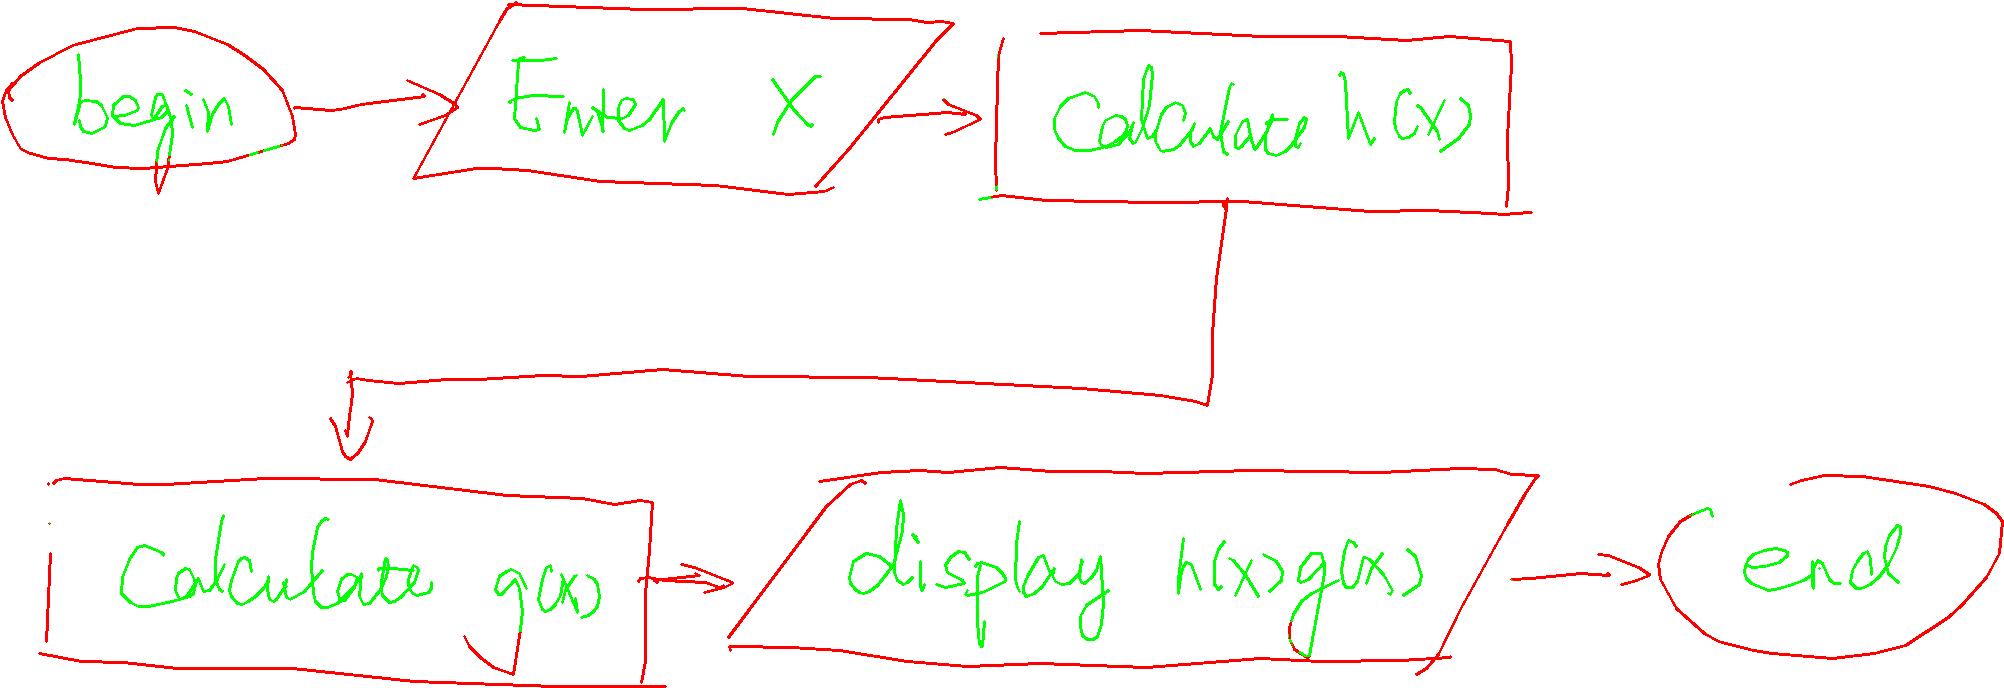 begin
Enter X
Calculate h(x)
Calculate g(x)
display h(x)g(x)
end